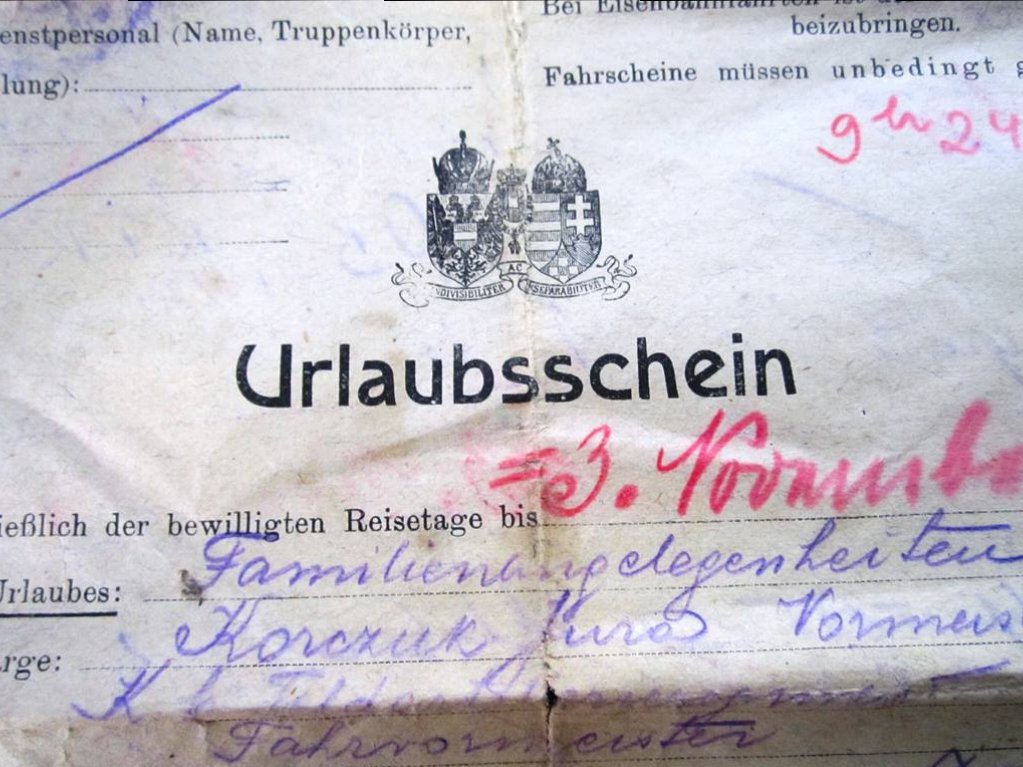 enstpersonal (Name, Truppenkörper,
lung):
Bei Eisenbahnfahrten ist
beizubringen.
Fahrscheine müssen unbedingt g
9h 24
INDIVISIBILITER AC INSEPARABILITER
Urlaubsschein
ießlich der bewilligten Reisetage bis =3. November
Urlaubes: Familienangelegenheiten
rge: Korczuk Jura Vormeis
K
Fahrvormeister